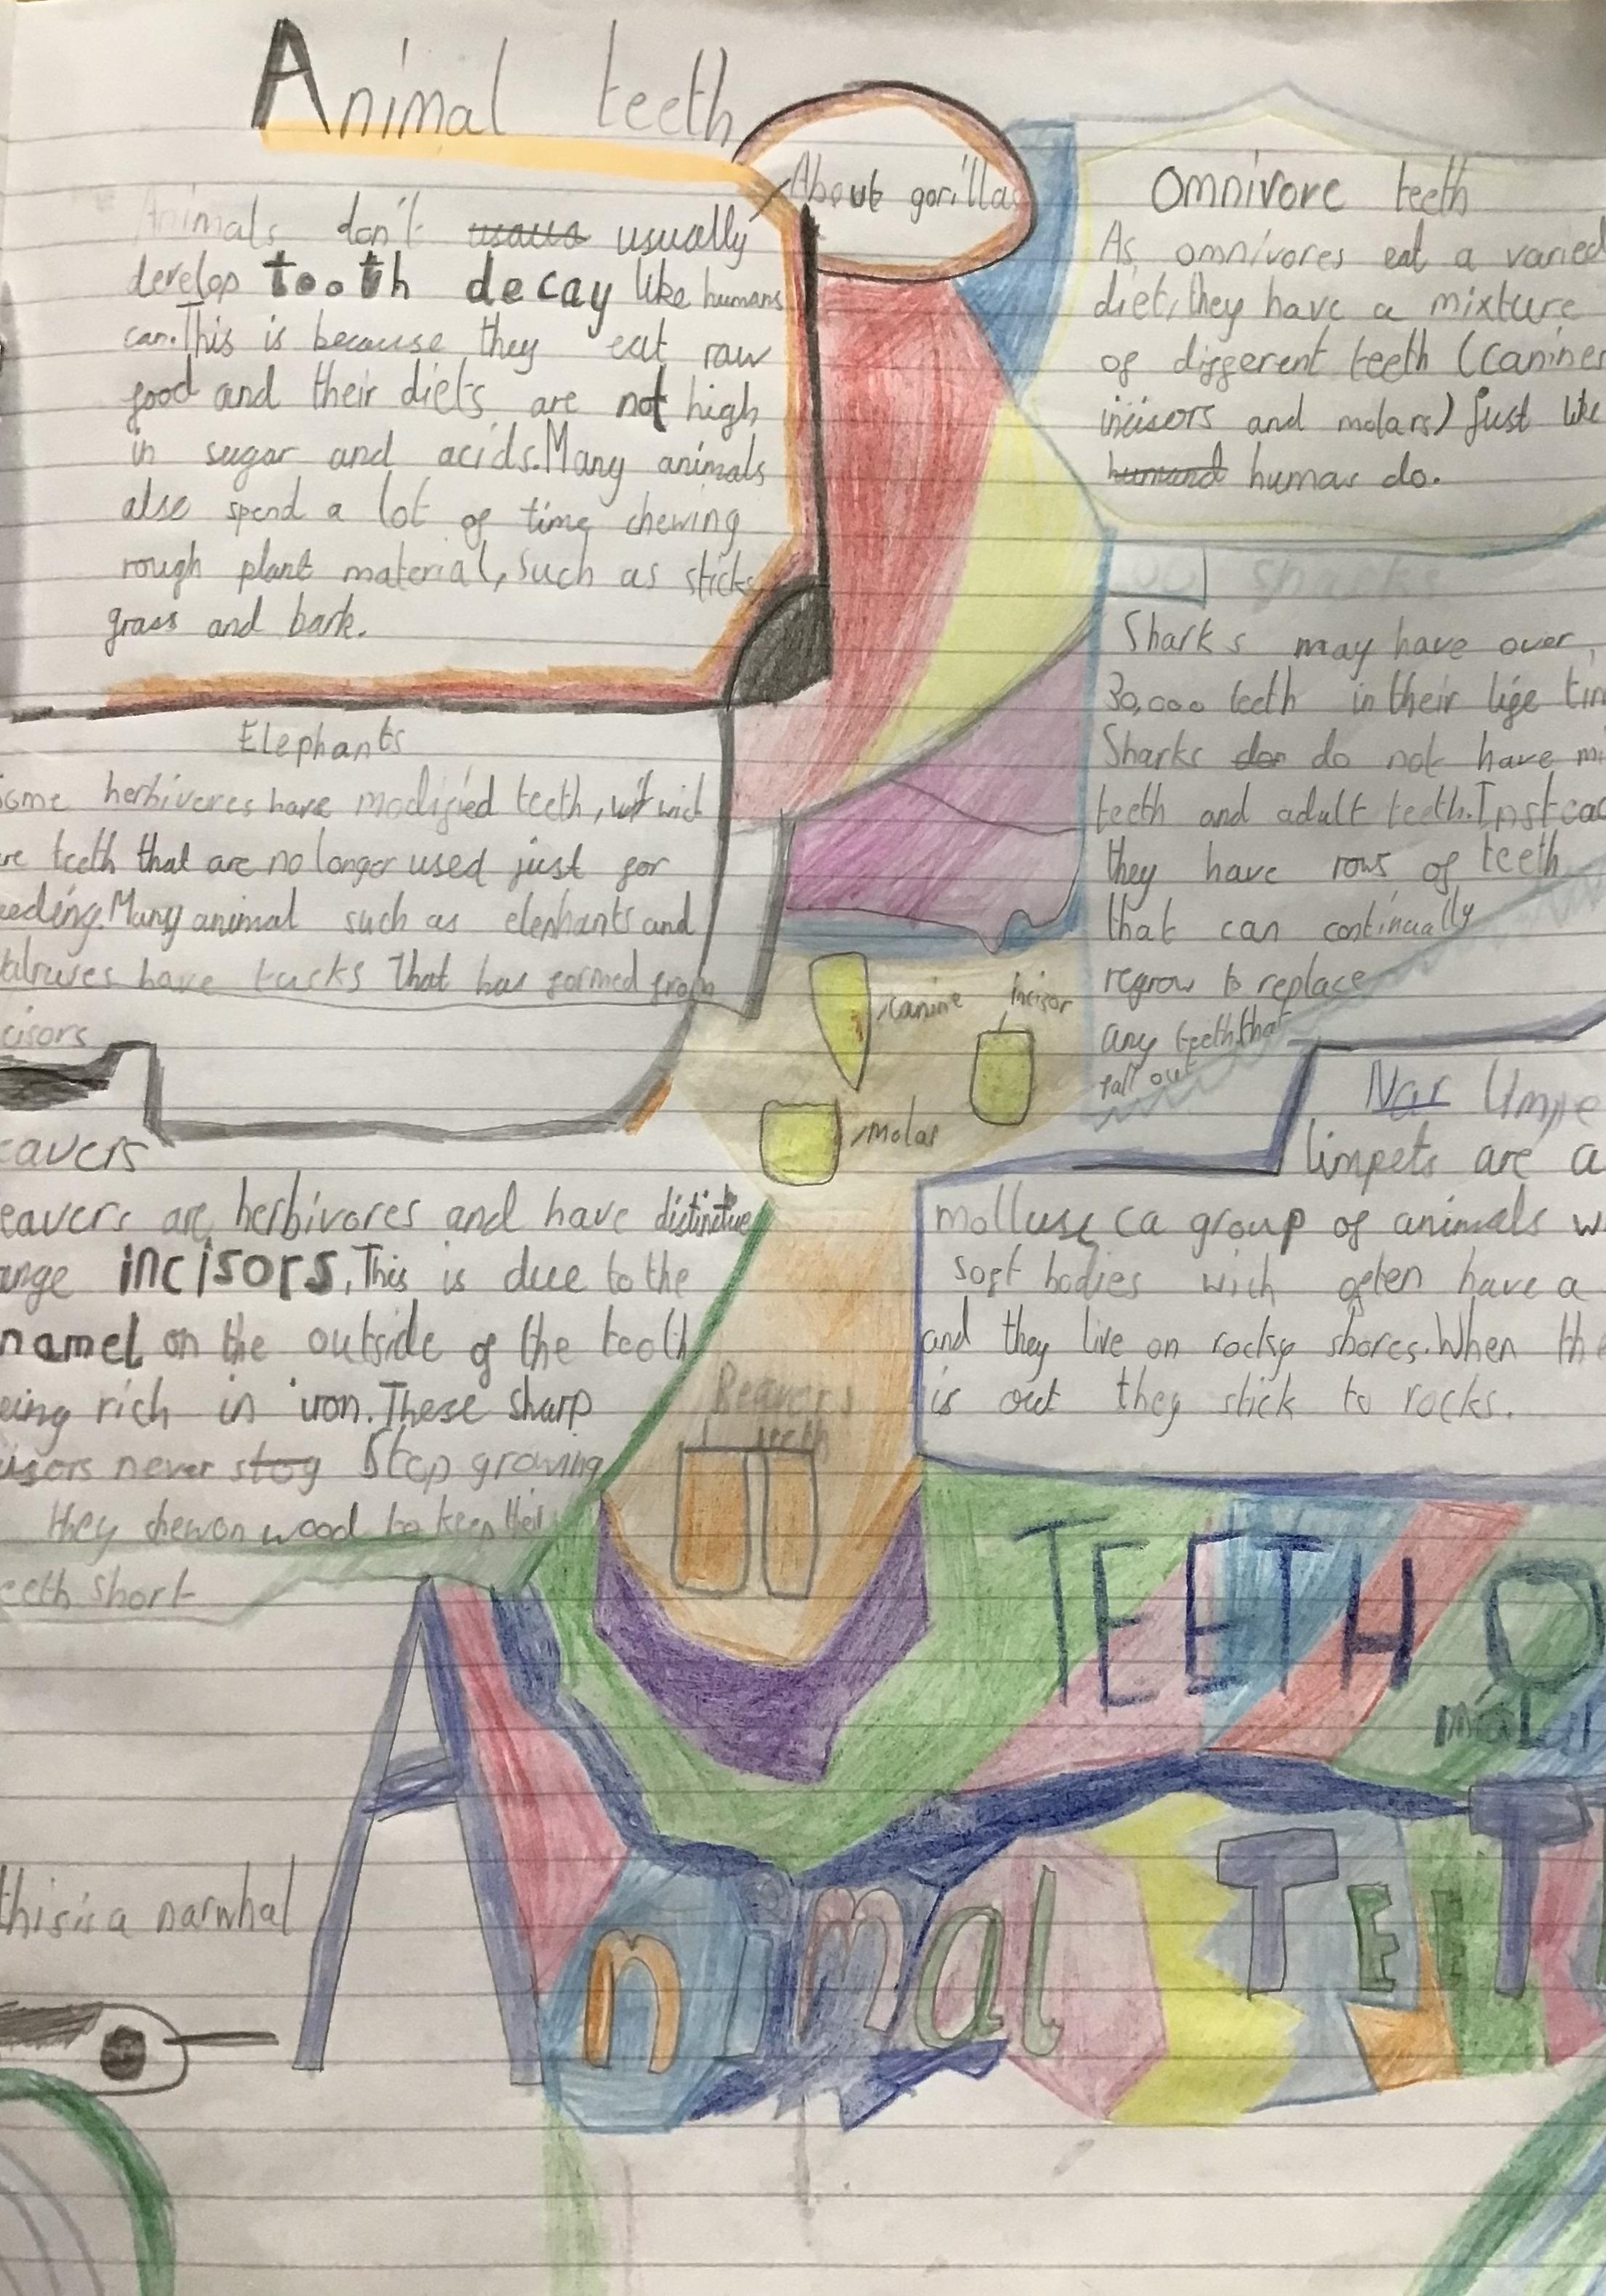 Animal teeth
About gorillas
Animals don't usaus usually
develop tooth decay like humans
can. This is because they eat raw
food and their diets are not high
in sugar and acids. Many animals
also spend a lot of time chewing
rough plant material, such as sticks
grass and bark.
Omnivore teeth
As omnivores eat a varied
diet, they have a mixture
of different teeth (canines
incisors and molars) just like
humand humas do.
Elephants
some herbiveres have modified teeth, wich
are teeth that are no longer used just for
eeding. Many animal such as elephants and
walruses have tusks that has formed from
cisors
Sharks may have over
30,000 teeth in their life tim
Sharks do do not have mi
teeth and adult teeth. Instead
they have rows of teeth
that can continually
regrow to replace
any teeth that
fall out
canine
incisor
molar
eavers
eavers are herbivores and have distinctive
ange incisors. This is due to the
namel on the outside of the tooth
eing rich in iron. These sharp
isors never stog Stop growing
they shewon wood to keep their
eeth short
Nar limpe
limpets are a
mollusc ca group of animals w
soft bodies wich often have a
and they live on rocky shores. When the
is out they stick to rocks.
Beavers
teeth
TEETH
this is a narwhal
Animal TEET